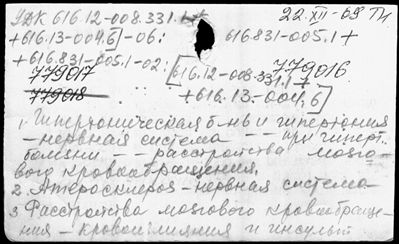 УДК 616.12-008.331.1+ 22.XII-69 Тк
+616.13-004.6]-06: 616.831-005.1+
+616.831-005.1-02:[616.12-008.331.1+
779017 779016
779018 +616.13-004.6]
1. Гипертоническая б-нь и гипертония
-нервная система -- при гиперт.
болезни -- расстройства мозго-
вого кровообращения.
2. Атеросклероз - нервная система
3. Расстройства мозгового кровообраще-
ния - кровоизлияния и инсульт